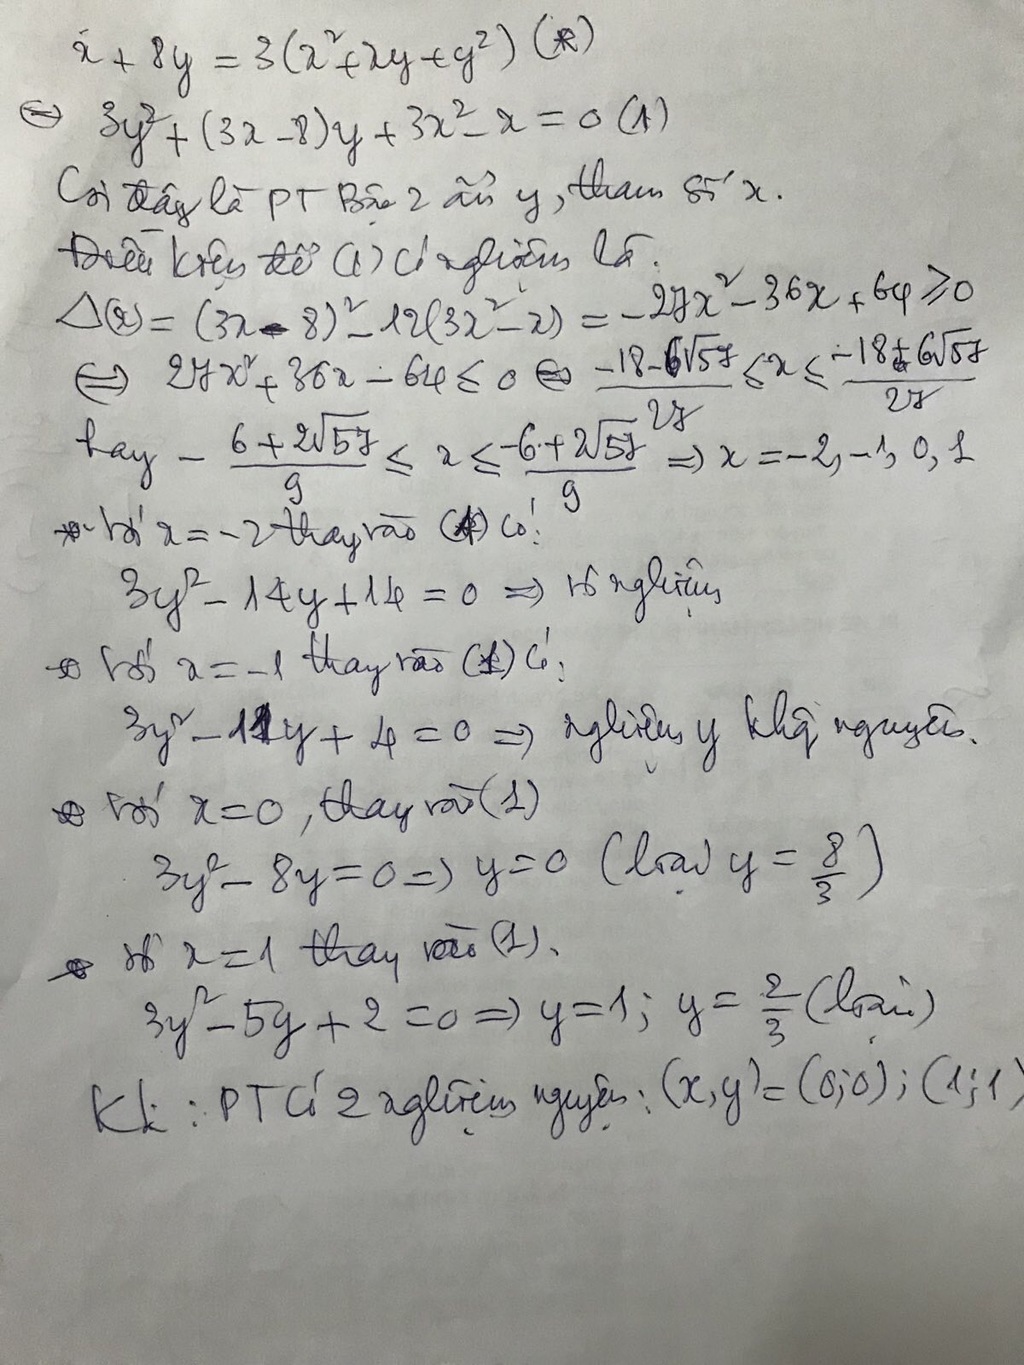 x + 8y = 3(x² + xy + y²) (*)
⇔ 3y² + (3x - 8)y + 3x² - x = 0 (1)
Coi đây là PT Bậc 2 ẩn y, tham số x.
Điều kiện để (1) có nghiệm là.
Δ(x) = (3x - 8)² - 12(3x² - x) = -27x² - 36x + 64 ≥ 0
⇔ 27x² + 36x - 64 ≤ 0 ⇔ (-18 - 6√57)/27 ≤ x ≤ (-18 + 6√57)/27
hay - (6 + 2√57)/9 ≤ x ≤ (-6 + 2√57)/9 ⇒ x = -2, -1, 0, 1
* Với x = -2 thay vào (1) có:
3y² - 14y + 14 = 0 ⇒ vô nghiệm
* Với x = -1 thay vào (1) có:
3y² - 11y + 4 = 0 ⇒ nghiệm y không nguyên.
* Với x = 0, thay vào (1)
3y² - 8y = 0 ⇒ y = 0 (loại y = 8/3)
* Với x = 1 thay vào (1).
3y² - 5y + 2 = 0 ⇒ y = 1; y = 2/3 (loại)
KL: PT có 2 nghiệm nguyên: (x,y) = (0;0); (1;1)